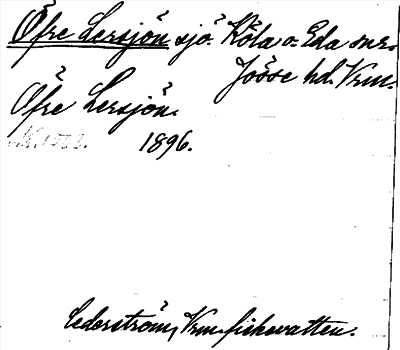 Öfre Lersjön sjö. Köla o. Eda snr.
Jösse hd. Vrm.
Öfre Lersjön.
1896.
Cederström, Vrm. fiskevatten.